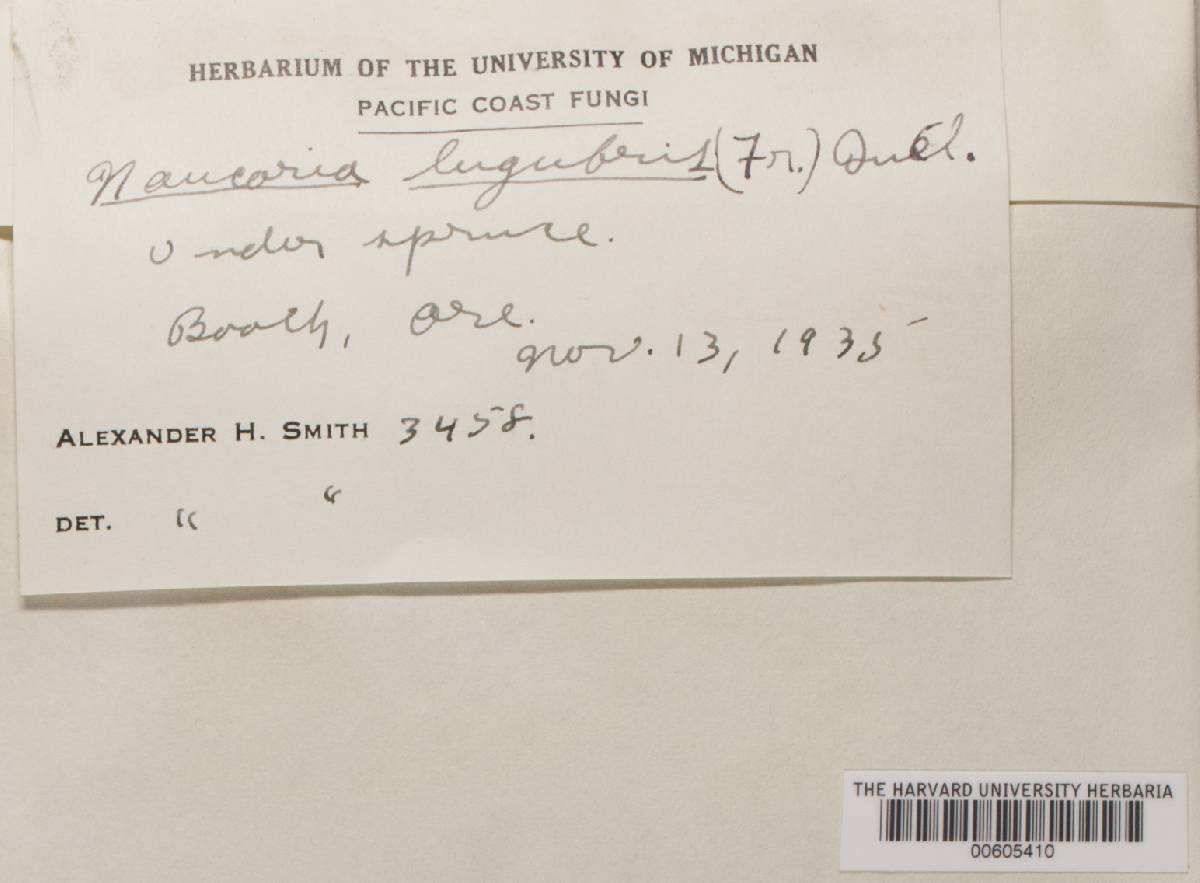 HERBARIUM OF THE UNIVERSITY OF MICHIGAN
PACIFIC COAST FUNGI
Naucoria lugubris (Fr.) Quél.
Under spruce.
Booth, Ore.
Nov. 13, 1935
ALEXANDER H. SMITH 3458.
DET. " "
THE HARVARD UNIVERSITY HERBARIA
00605410